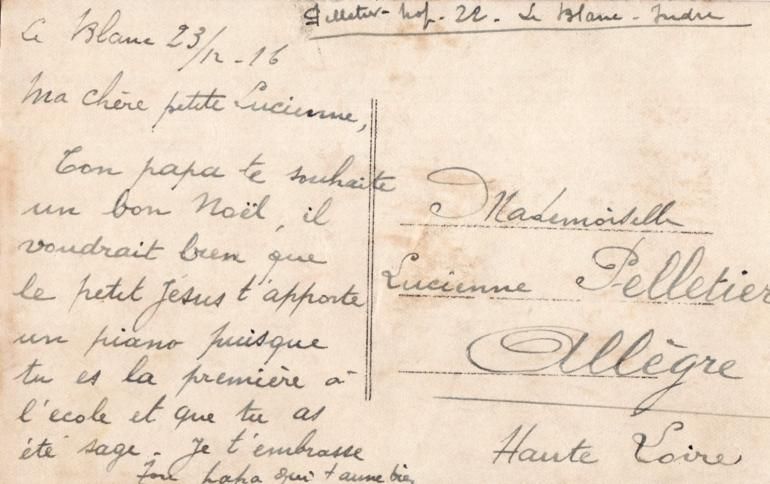 Pelletier - hop. 22. Le Blanc - Indre
Le Blanc 23/12 - 16
Ma chère petite Lucienne,
Ton papa te souhaite
un bon Noël, il
voudrait bien que
le petit Jésus t'apporte
un piano puisque
tu es la première à
l'école et que tu as
été sage. Je t'embrasse
Ton papa qui t'aime bien
Mademoiselle
Lucienne Pelletier
Allègre
Haute Loire